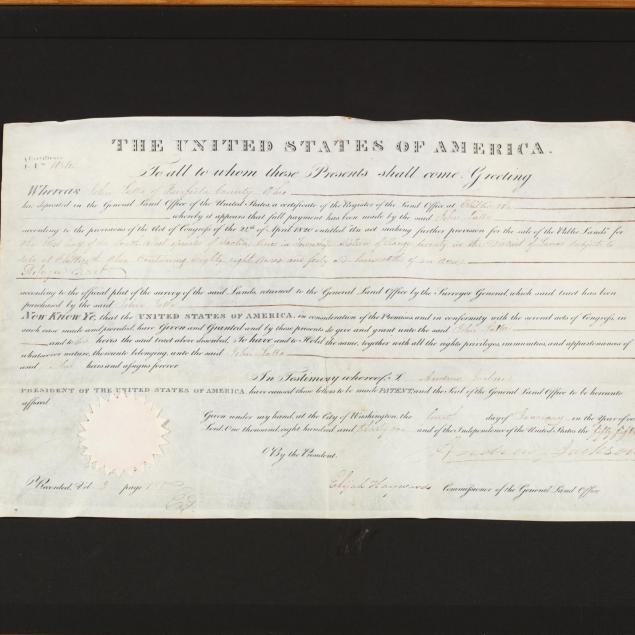 THE UNITED STATES OF AMERICA.
To all to whom these Presents shall come, Greeting
Whereas John of Fairfield County Ohio
has deposited in the General Land Office of the United States a certificate of the Register of the Land Office at Chillicothe
whereby it appears that full payment has been made by the said John
according to the provisions of the Act of Congress of the 24th of April 1820 entitled "An act making further provision for the sale of the Public Lands" for
the West half of the South West quarter of Section nine in Township sixteen of Range twenty in the District of Lands subject to
sale at Chillicothe Ohio Containing Eighty eight acres and forty six hundredth of an acre
according to the official plat of the survey of the said Lands, returned to the General Land Office by the Surveyor General, which said tract has been
purchased by the said John
Now Know Ye, that the UNITED STATES OF AMERICA, in consideration of the Premises and in conformity with the several acts of Congress, in
such case made and provided, have Given and Granted and by these presents do give and grant unto the said John
and to his heirs the said tract above described, To have and to Hold the same, together with all the rights privileges, immunities, and appurtenances of
whatsoever nature, thereunto belonging, unto the said John
and his heirs and assigns forever
In Testimony whereof, I Andrew Jackson
PRESIDENT OF THE UNITED STATES OF AMERICA, have caused these letters to be made PATENT, and the Seal of the General Land Office to be hereunto
affixed
Given under my hand, at the City of Washington, the day of January in the Year of our
Lord, One thousand, eight hundred and thirty one and of the Independence of the United States the fifty fifth
Andrew Jackson
By the President.
Elijah Hayward Commissioner of the General Land Office
Recorded, Vol 3 page